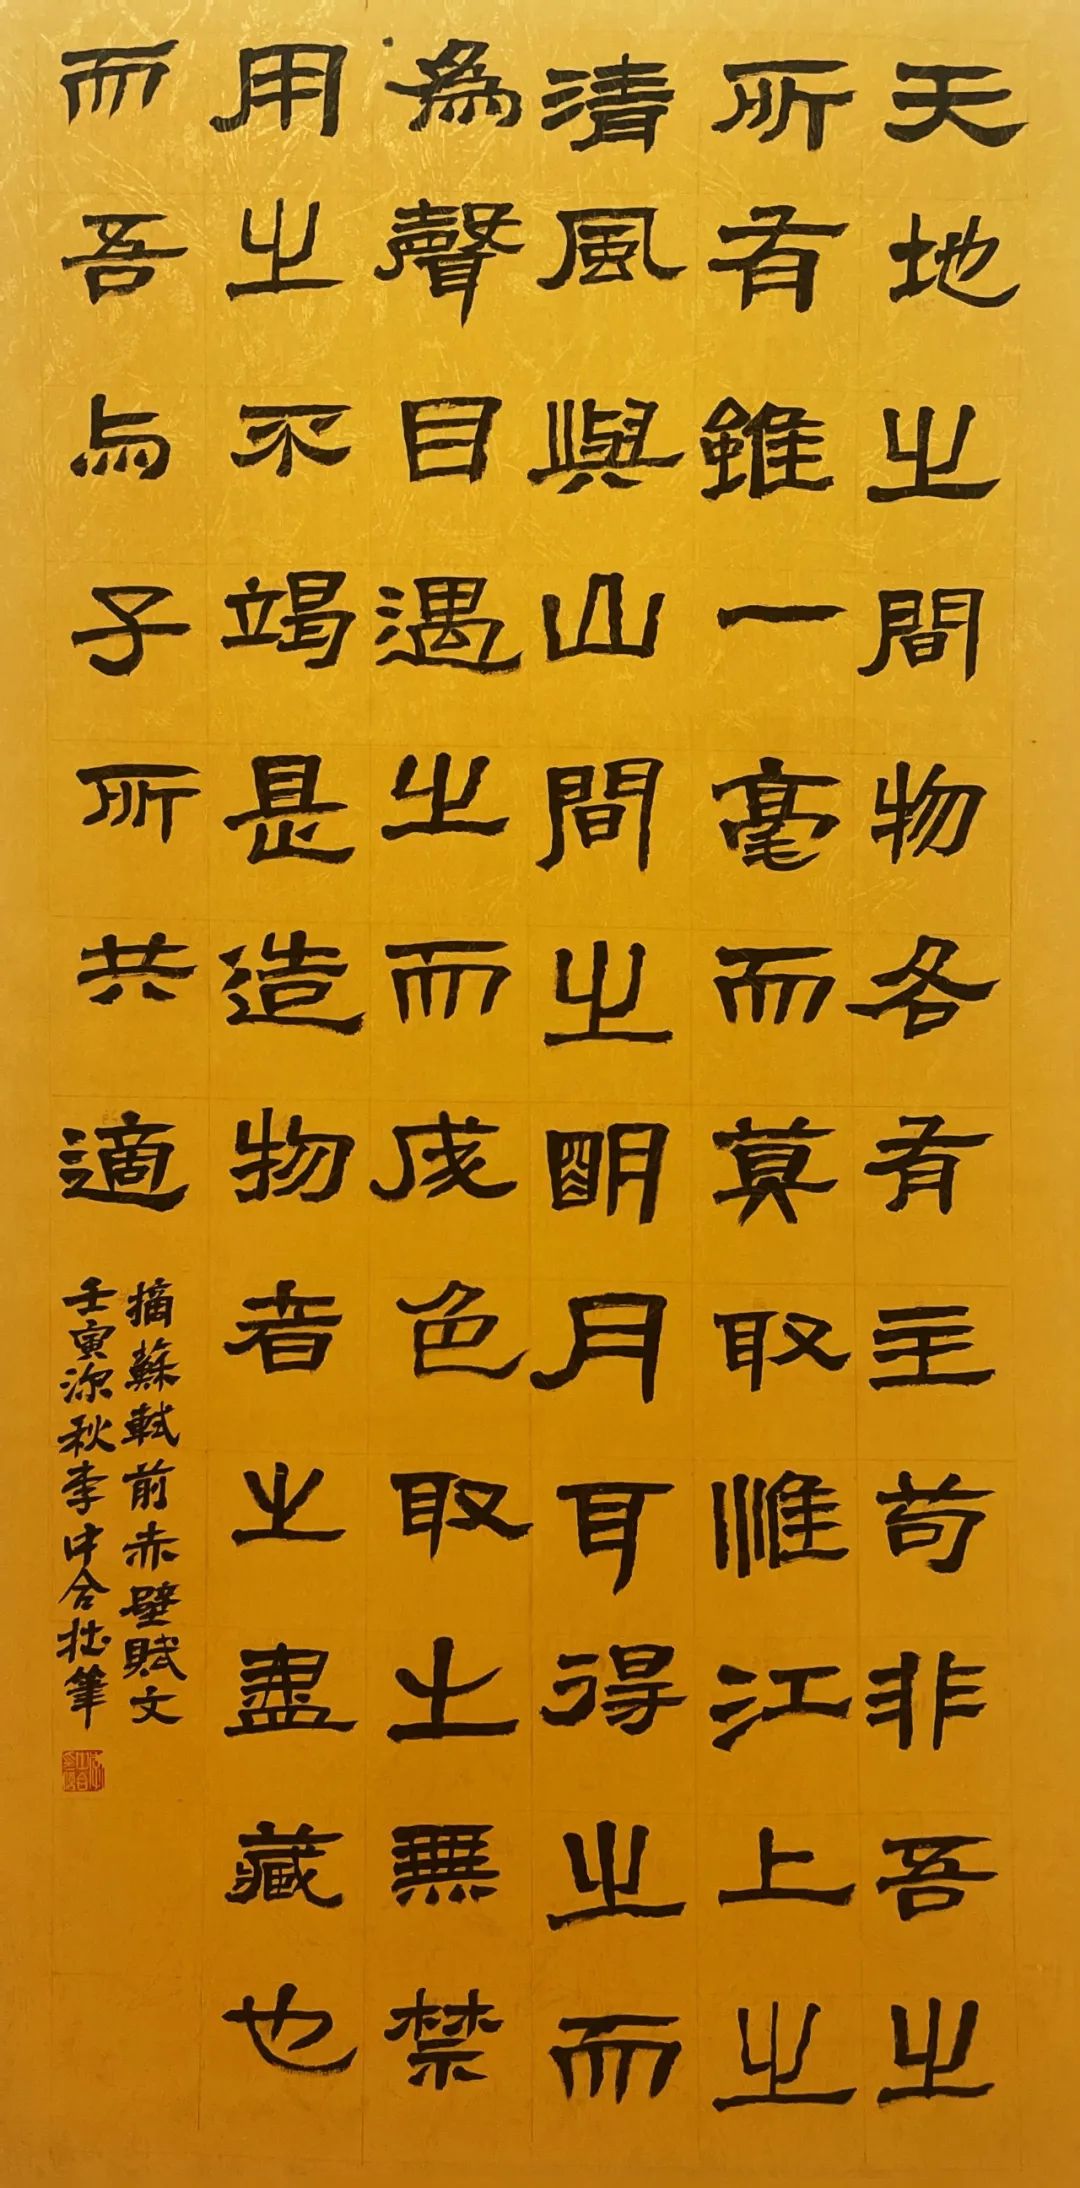 天地之間物各有主苟非吾之
所有雖一毫而莫取惟江上之
清風與山間之明月耳得之而
為聲目遇之而成色取之無禁
用之不竭是造物者之盡藏也
而吾与子所共適
摘蘇軾前赤壁賦文
壬寅深秋李中合拙筆